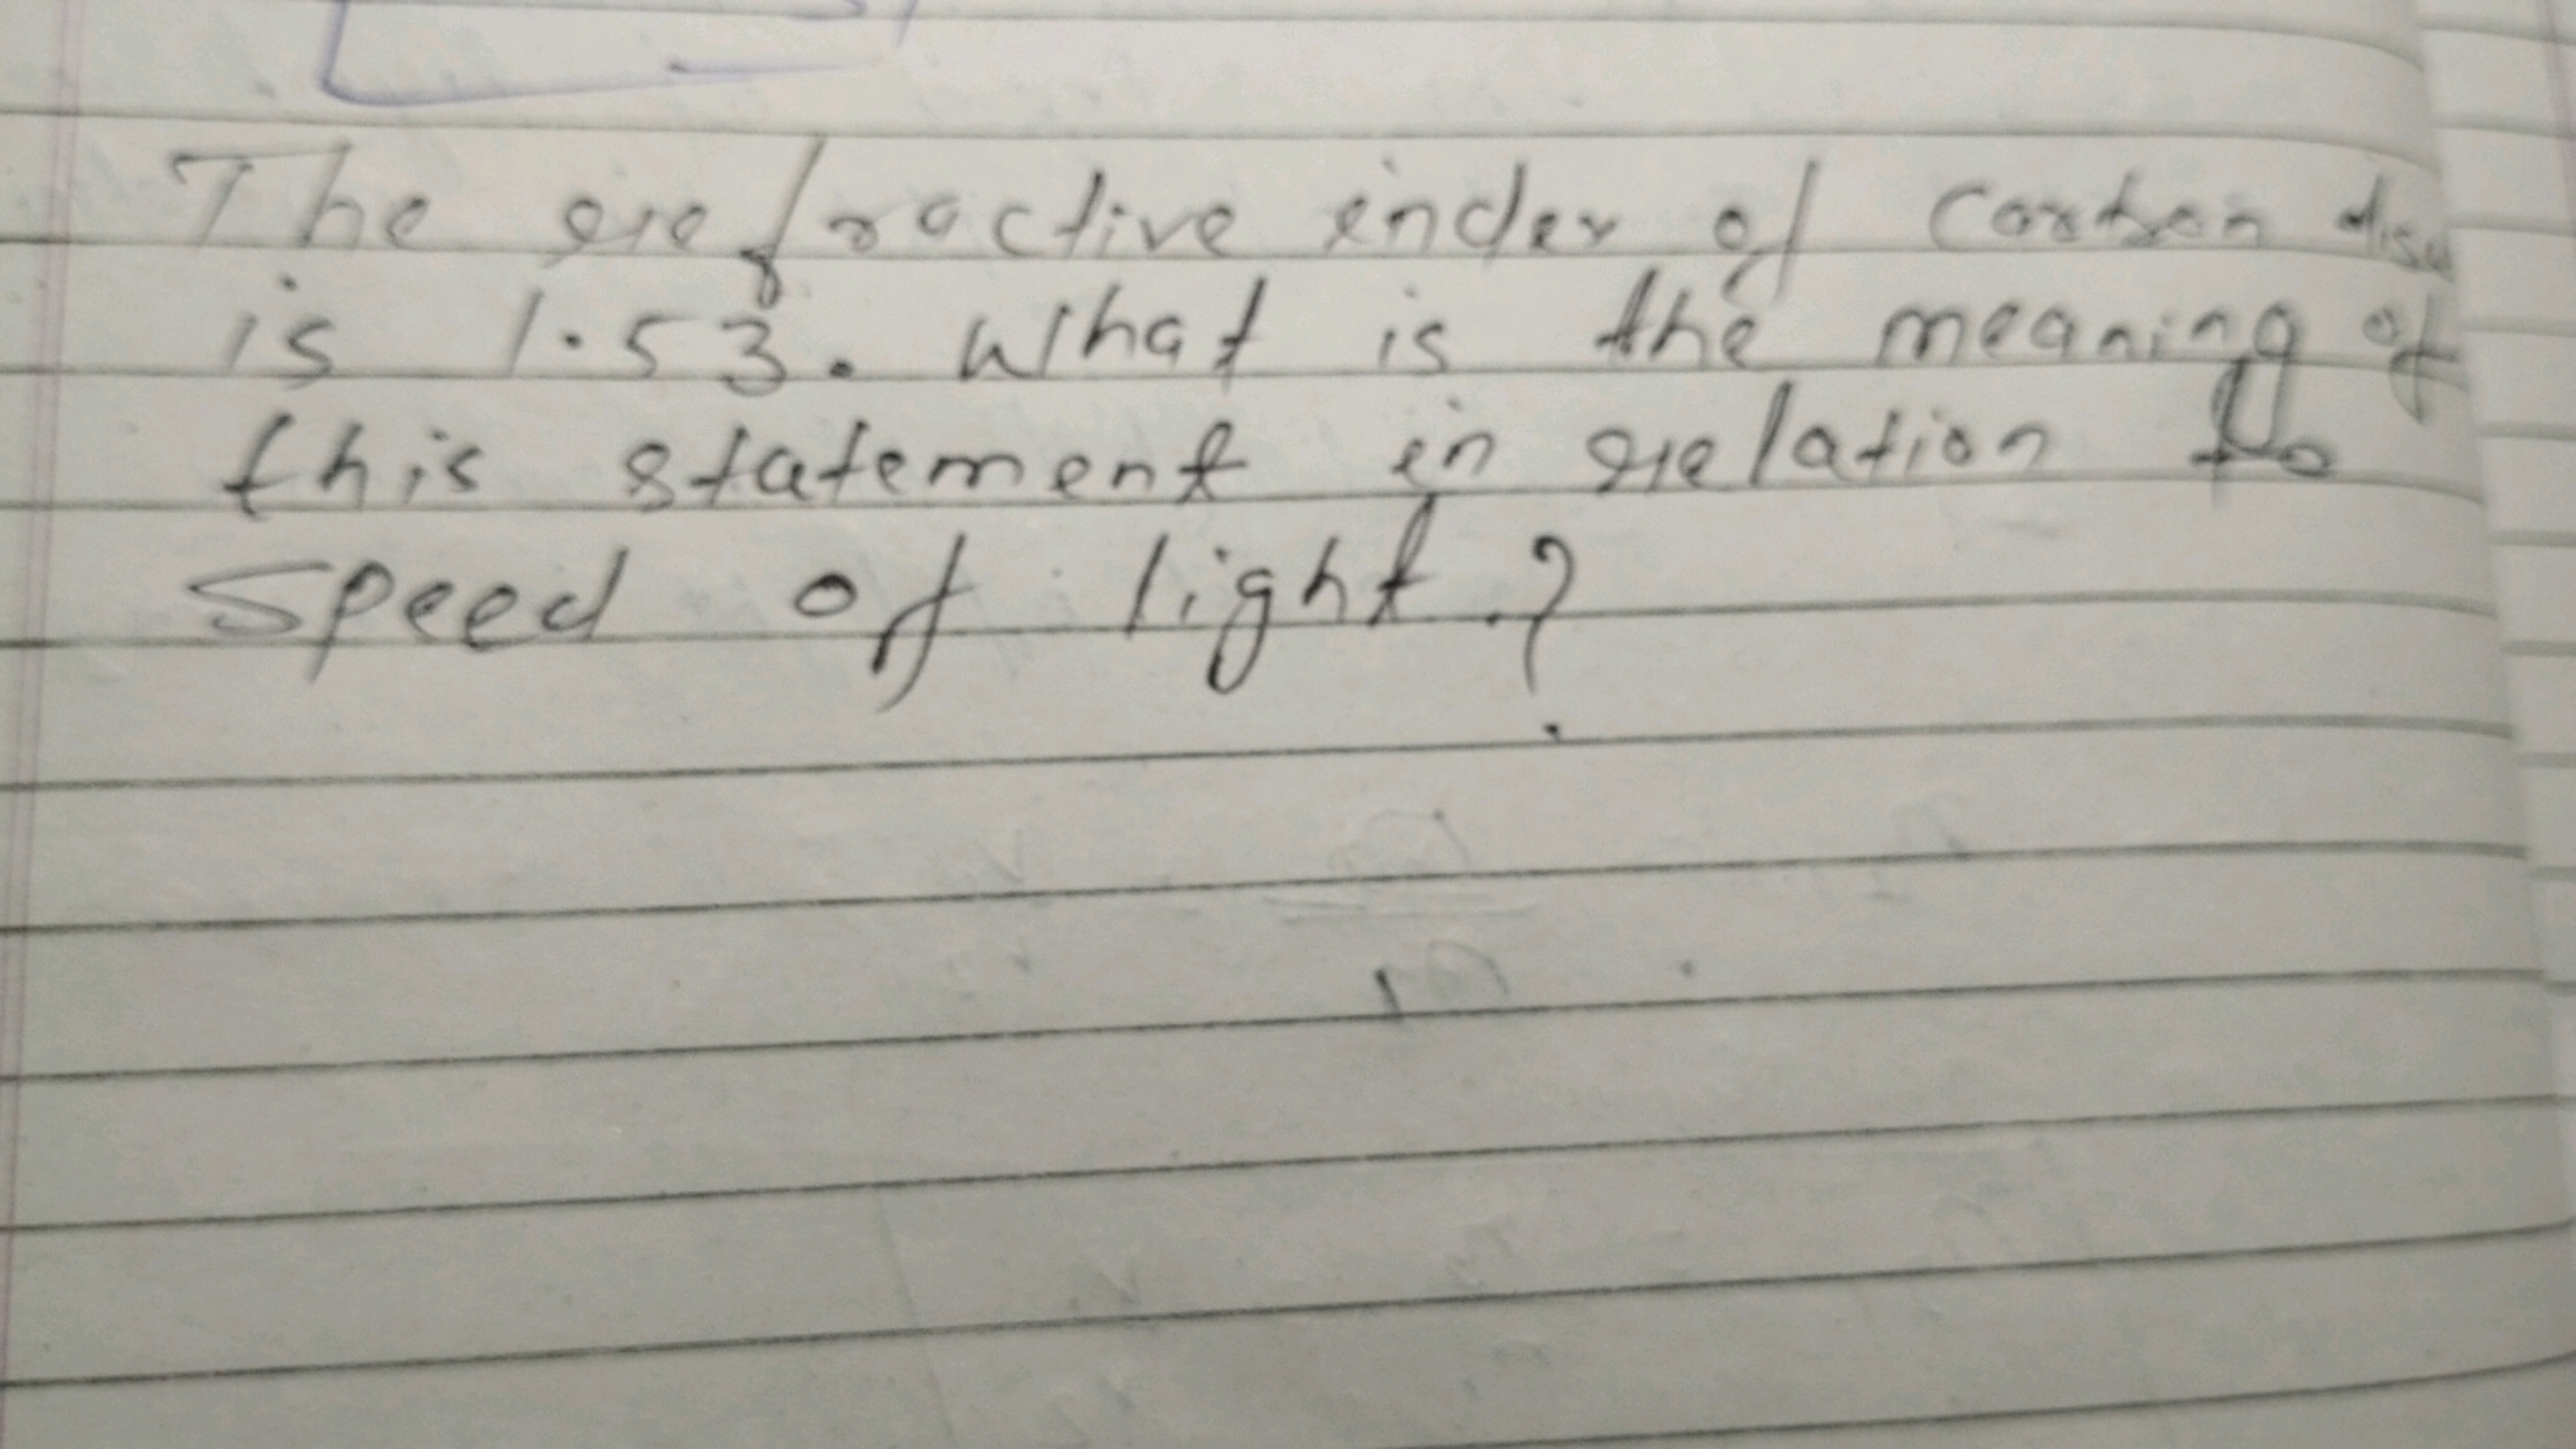 The refractive index of Carbon
is 1.53. What is the meaning of
this statement in relation to
speed of light?